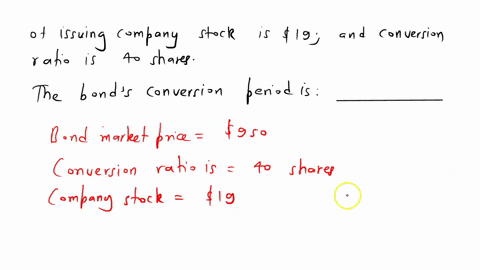 of issuing company stock is $19; and conversion
ratio is 40 shares.
The bond's conversion period is: __________
Bond market price = $950
Conversion ratio is = 40 shares
Company stock = $19